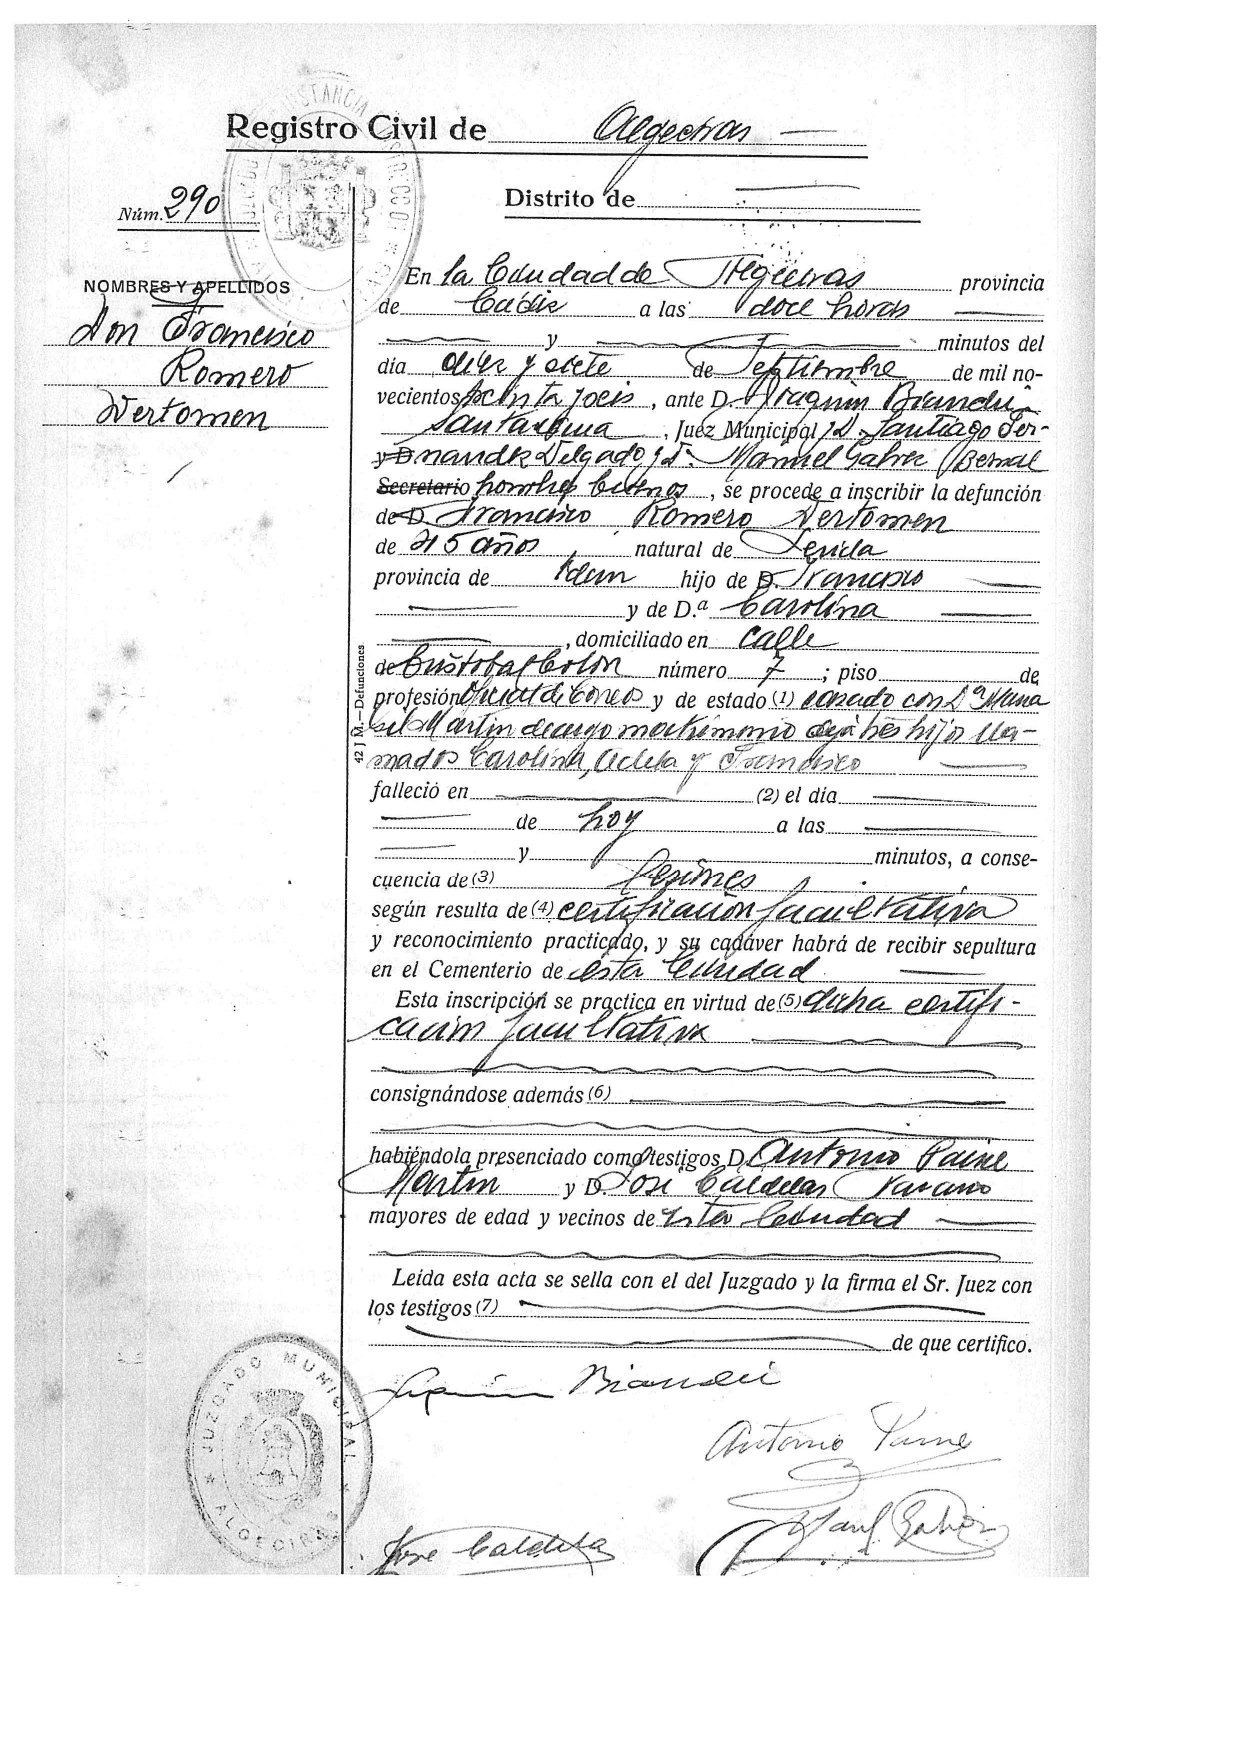 Registro Civil de Algeciras
Núm. 290
Distrito de
NOMBRES Y APELLIDOS
Don Francisco
Romero
Vertomen
En la Ciudad de Algeciras provincia
de Cádiz a las doce horas
y minutos del
día diez y siete de Septiembre de mil no-
vecientos treinta y seis, ante D. Joaquín Bianchi
Santacana, Juez Municipal, D. Santiago Fer-
y D. nandez Delgado y D. Manuel Galvez Bernal
Secretario hombres buenos, se procede a inscribir la defunción
de D. Francisco Romero Vertomen
de 45 años, natural de Lerida
provincia de Idem hijo de D. Francisco
y de D.ª Carolina
, domiciliado en calle
de Cristobal Colón número 7 ; piso de
profesión Oficial de Correos y de estado (1) casado con Dª Maria
Gil Martin de cuyo matrimonio deja tres hijos lla-
mados Carolina, Adela y Francisco
falleció en (2) el día
de hoy a las
y minutos, a conse-
cuencia de (3) lesiones
según resulta de (4) certificación facultativa
y reconocimiento practicado, y su cadáver habrá de recibir sepultura
en el Cementerio de esta Ciudad
Esta inscripción se practica en virtud de (5) dicha certifi-
cación facultativa
consignándose además (6)
habiéndola presenciado como testigos D. Antonio
Martin y D. José Caldelas
mayores de edad y vecinos de esta Ciudad
Leída esta acta se sella con el del Juzgado y la firma el Sr. Juez con
los testigos (7)
de que certifico.
42 J M.—Defunciones
Joaquín Bianchi
Antonio
JUZGADO MUNICIPAL
ALGECIRAS
José Caldelas
Manl Galvez